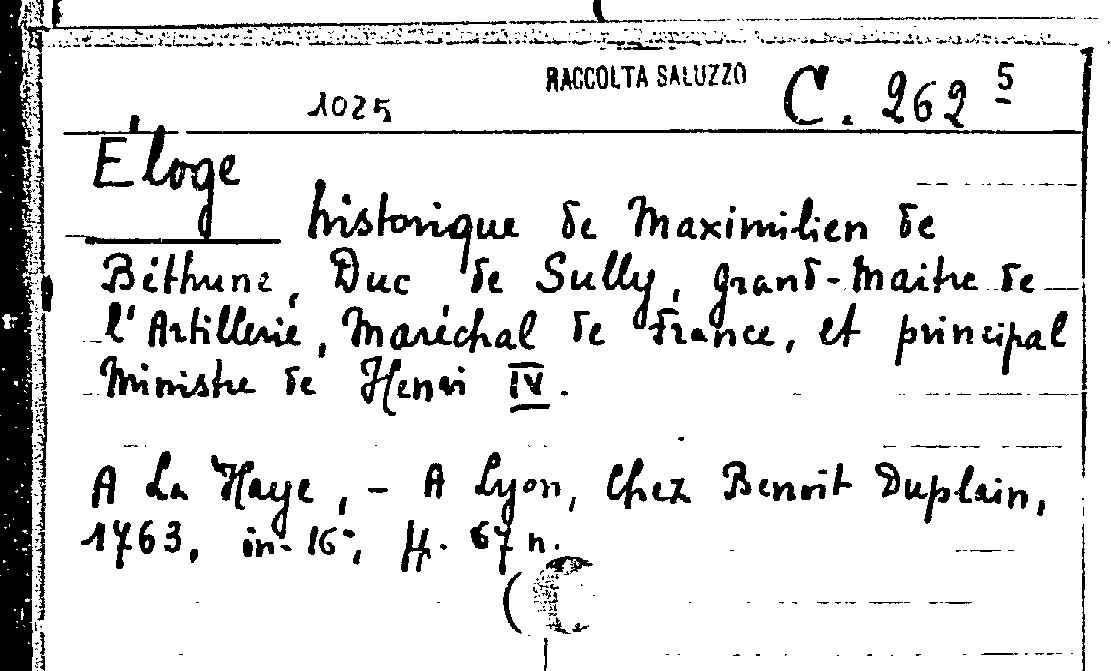 RACCOLTA SALUZZO
1025 C. 262 5
Éloge
historique de Maximilien de
Béthune, Duc de Sully, grand-Maitre de
l'Artillerie, Maréchal de France, et principal
Ministre de Henri IV.
A La Haye, - A Lyon, Chez Benoit Duplain,
1763, in-16°, ff. 67 n.